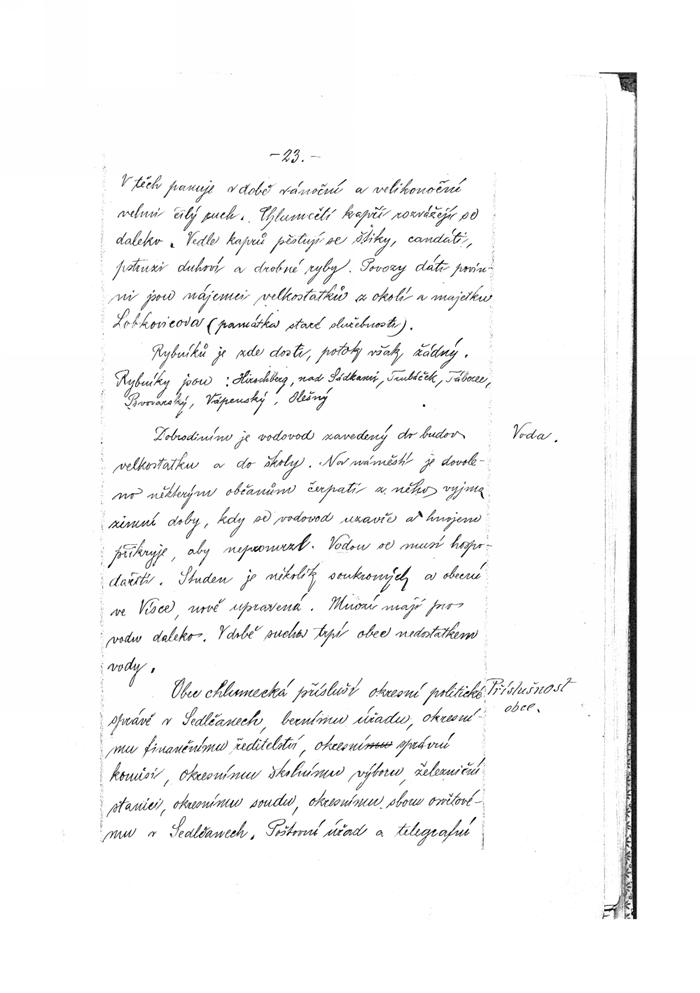 - 23. -
V těch panuje v době vánoční a velikonoční
velmi čilý ruch. Chlumečtí kapři rozvážejí se
daleko. Vedle kaprů pěstují se štiky, candáti,
pstruzi duhoví a drobné ryby. Povozy dáti povin-
ni jsou nájemci velkostatků z okolí a majetku
Lobkovicova (památka staré služebnosti).
Rybníků je zde dosti, potoky však žádný.
Rybníky jsou: Hirschberg, nad Sádkami, Trubáček, Táborec,
Pivovarský, Vápenský, Olešný
Dobrodiním je vodovod zavedený do budov
Voda.
velkostatku a do školy. Na náměstí je dovole-
no některým občanům čerpati z něho vyjma
zimní doby, kdy se vodovod uzavře a hnojem
přikryje, aby nepomrzl. Vodou se musí hospo-
dařiti. Studen je několik soukromých a obecní
ve Vísce, nově upravená. Mnozí mají pro
vodu daleko. V době sucha trpí obec nedostatkem
vody.
Obec chlumecká přísluší okresní politické
Příslušnost
obce.
správě v Sedlčanech, bernímu úřadu, okresní-
mu finančnímu ředitelství, okresní správní
komisi, okresnímu školnímu výboru, železniční
stanici, okresnímu soudu, okresnímu sboru osvětové-
mu v Sedlčanech. Poštovní úřad a telegrafní